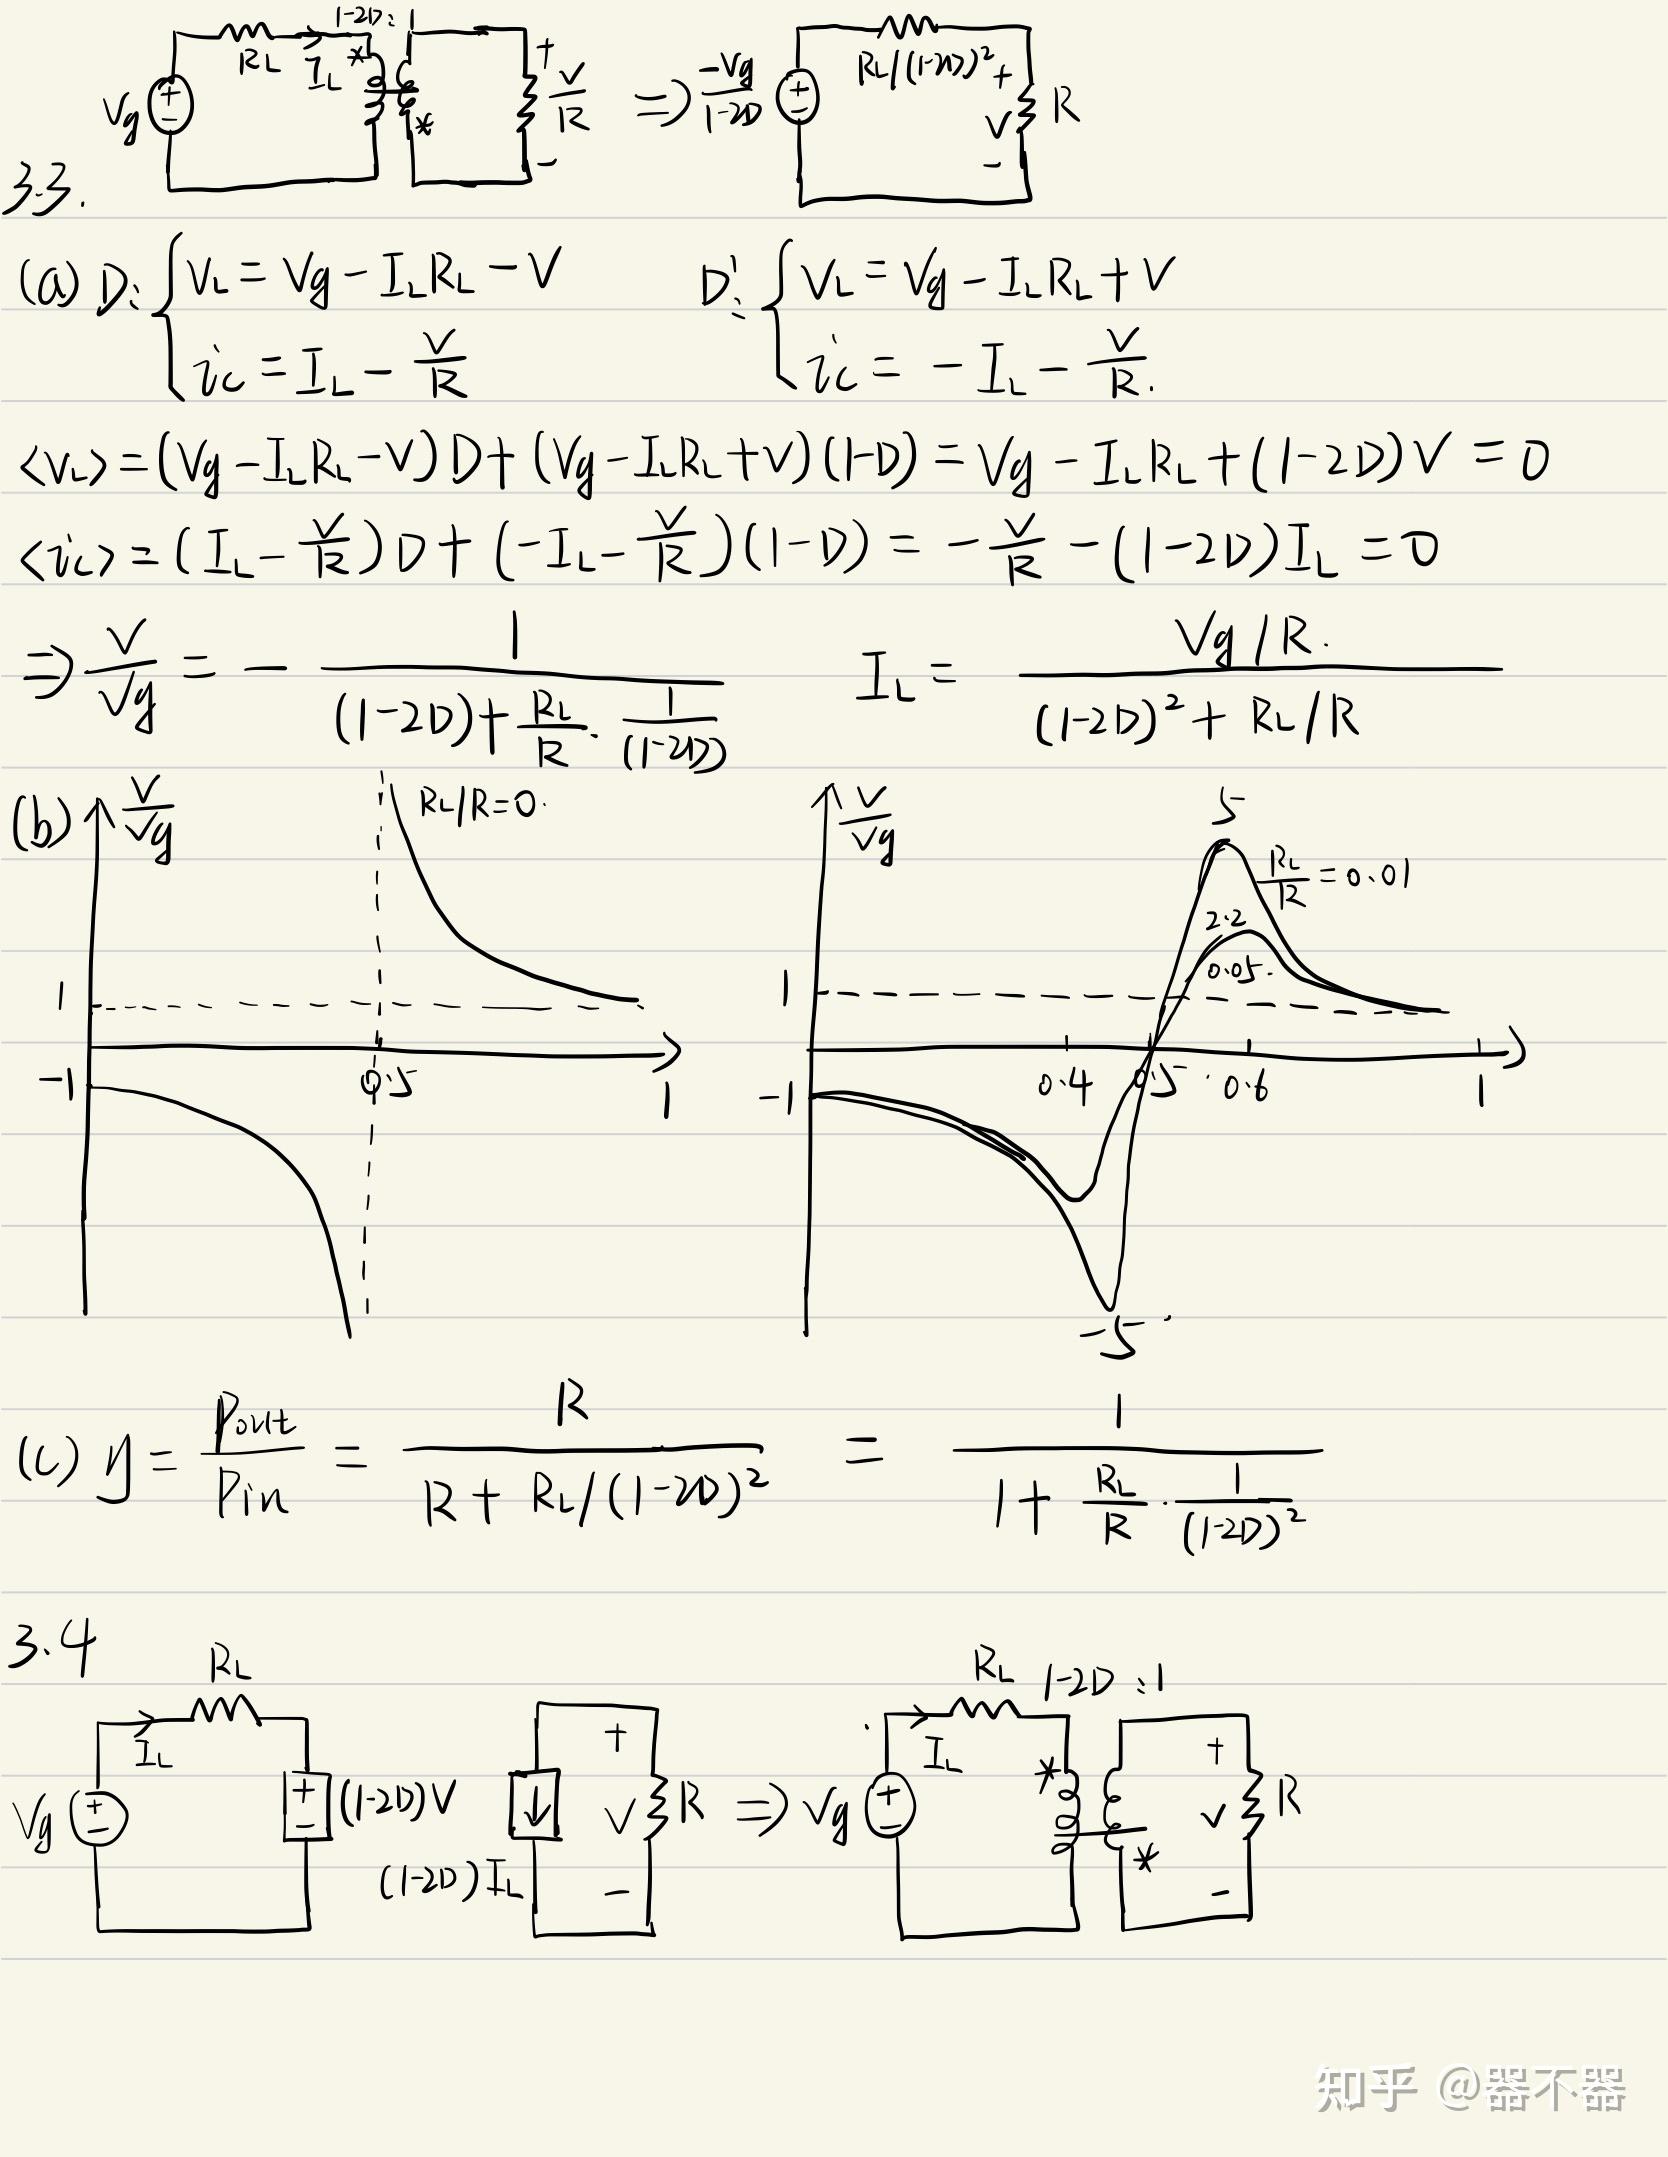 1-2D : 1
RL IL * * Vg + - + V/R - ⇒ -Vg/(1-2D) + - RL/(1-2D)² + V - R
3.3.
(a) D: { VL = Vg - ILRL - V    D': { VL = Vg - ILRL + V
ic = IL - V/R    ic = -IL - V/R.
<VL> = (Vg - ILRL - V) D + (Vg - ILRL + V) (1-D) = Vg - ILRL + (1-2D) V = 0
<ic> = (IL - V/R) D + (-IL - V/R) (1-D) = -V/R - (1-2D) IL = 0
⇒ V/Vg = - 1/((1-2D) + RL/R · 1/(1-2D))    IL = Vg/R. / ((1-2D)² + RL/R)
(b) V/Vg RL/R = 0. 1 -1 0.5 1
V/Vg 5 RL/R = 0.01 2.2 0.05. 1 -1 0.4 0.5 0.6 1 -5
(c) η = Pout/Pin = R/(R + RL/(1-2D)²) = 1/(1 + RL/R · 1/(1-2D)²)
3.4
RL IL Vg + - + - (1-2D)V (1-2D)IL ↓ + V - R ⇒ Vg + - IL RL 1-2D : 1 * * + V - R
知乎 @器不器